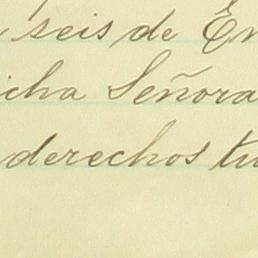 seis de En
icha Señora
derechos tu